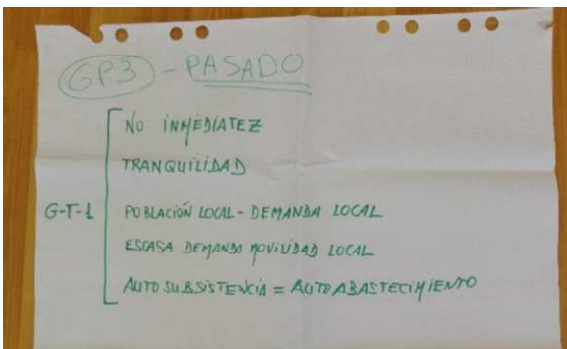 GP3 - PASADO
NO INMEDIATEZ
TRANQUILIDAD
G-T-1
POBLACIÓN LOCAL - DEMANDA LOCAL
ESCASA DEMANDA MOVILIDAD LOCAL
AUTOSUBSISTENCIA = AUTOABASTECIMIENTO